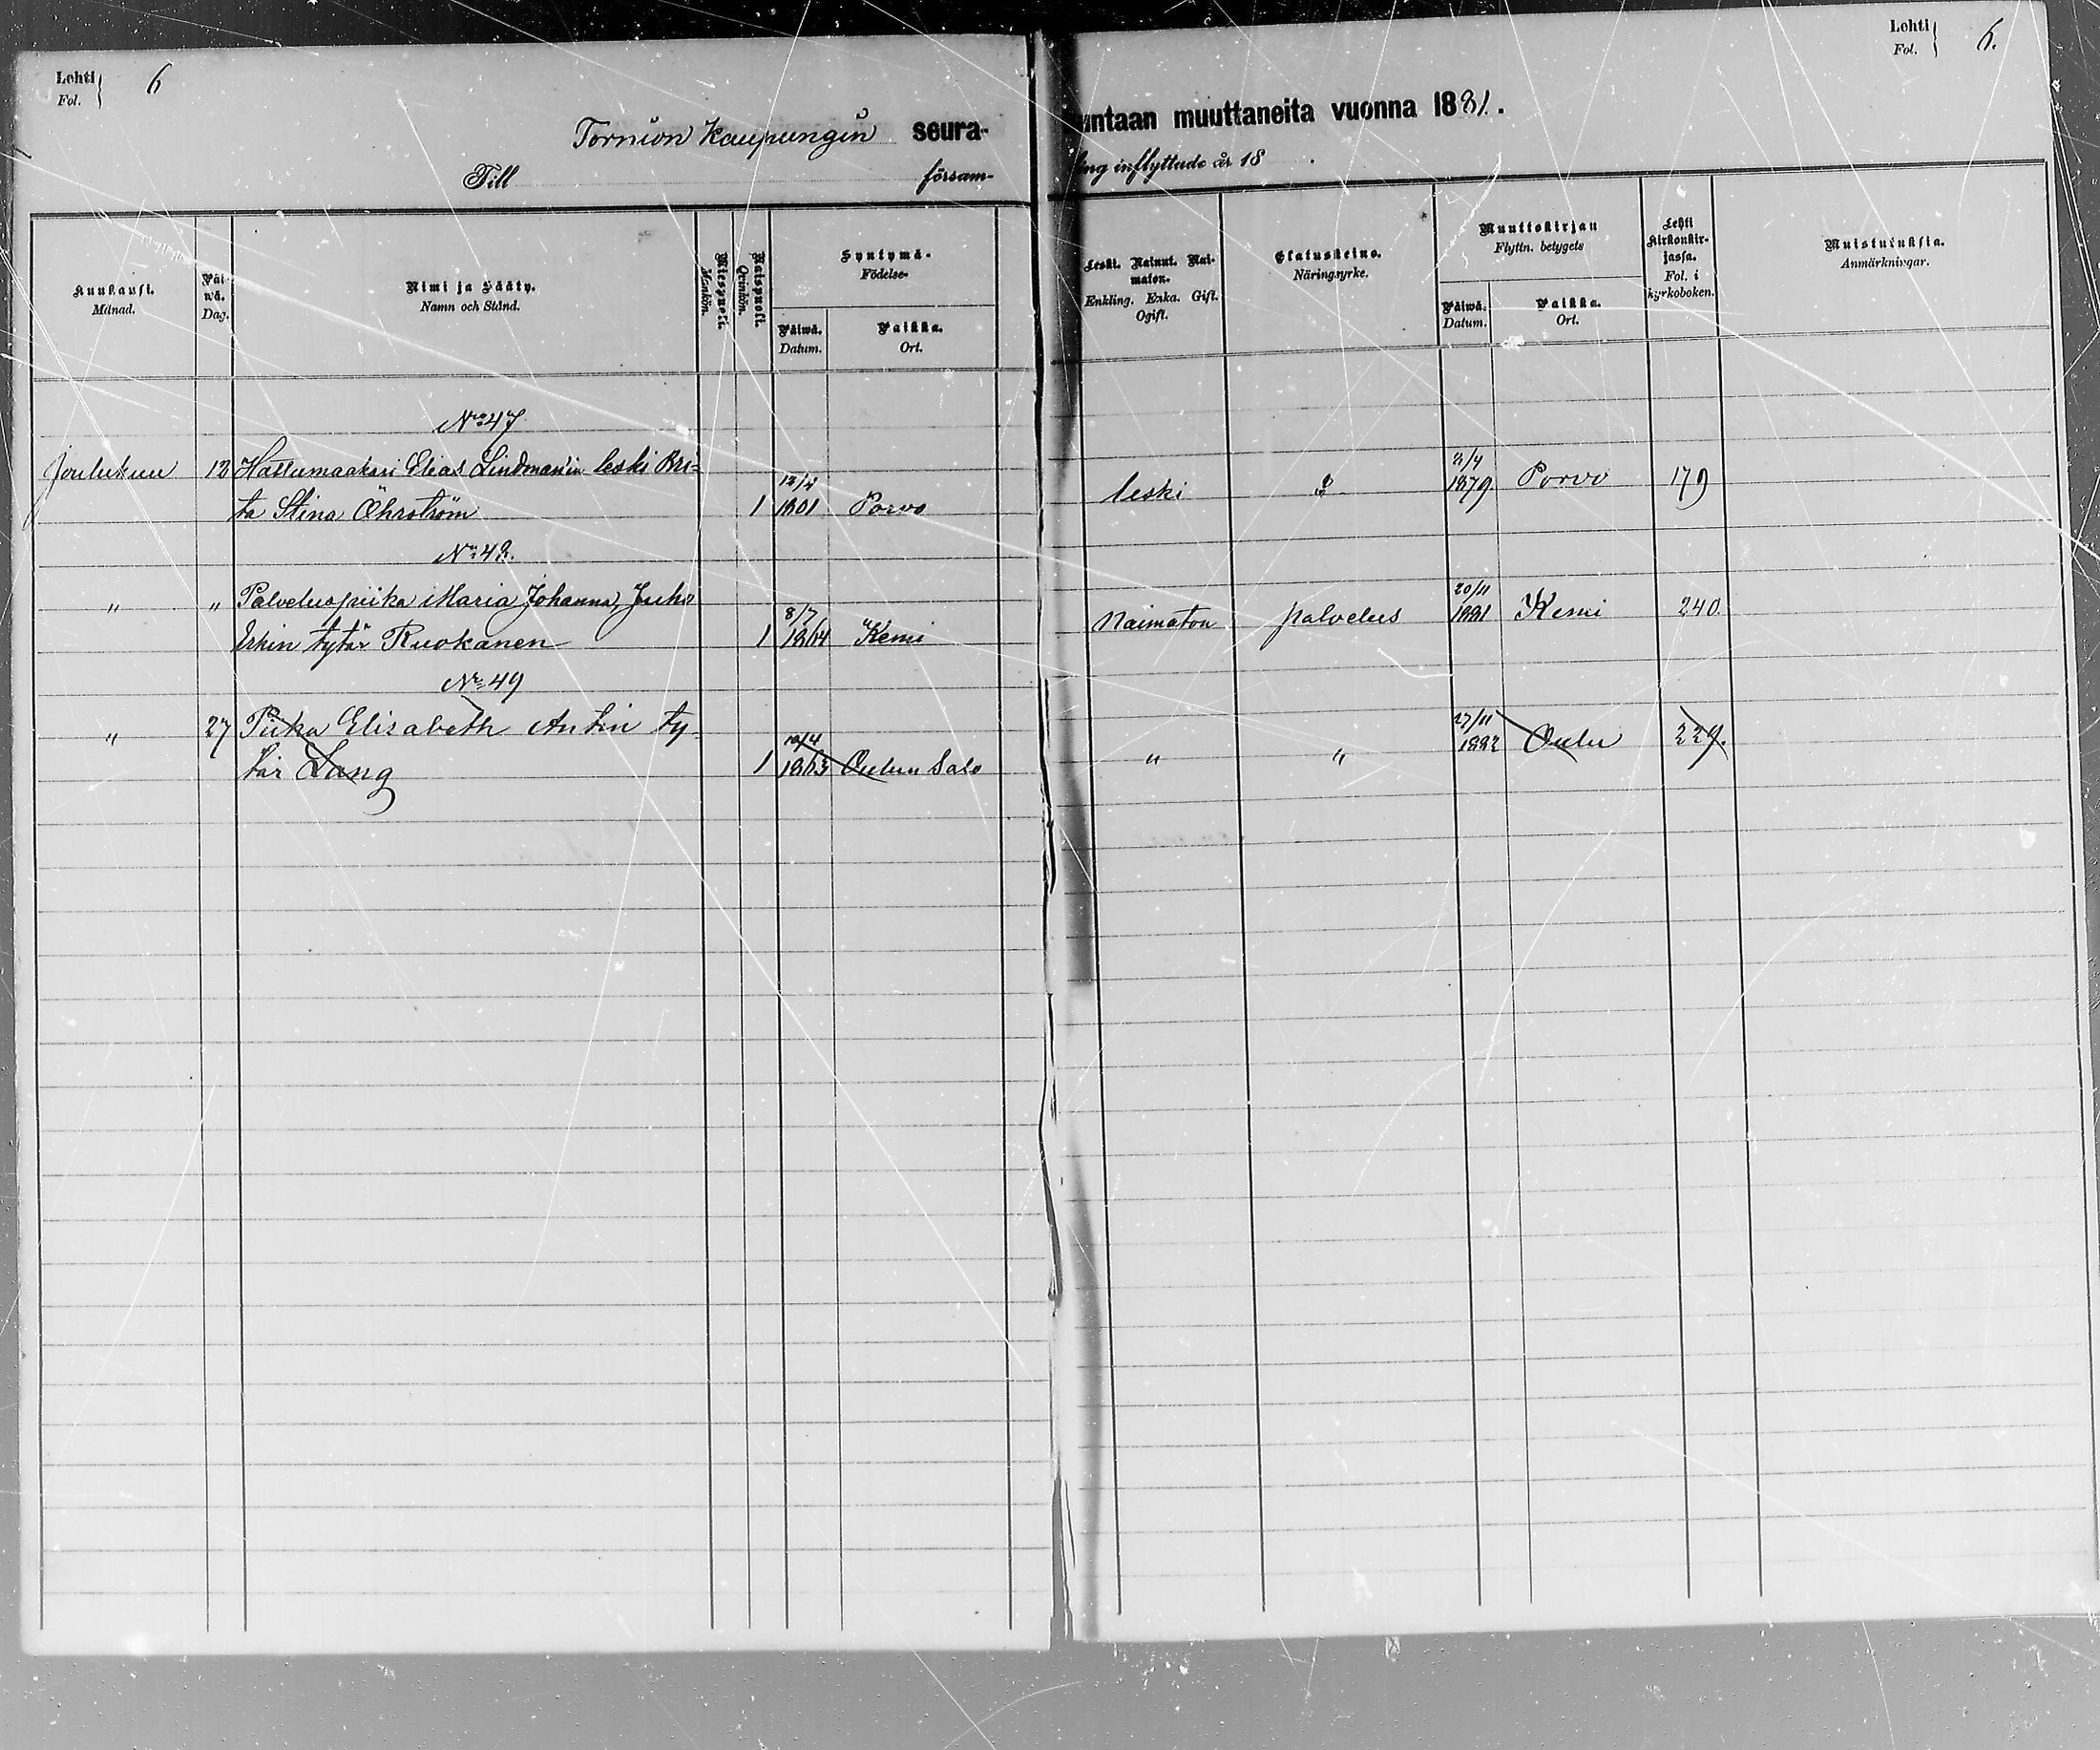 Lehti
Fol. } 6
Lehti
Fol. } 6.
Tornion Kaupungin seura-
untaan muuttaneita vuonna 1881.
Till försam-
ling inflyttade år 18 .
Kuukausi.
Månad.
Päi-
wä.
Dag.
Nimi ja Sääty.
Namn och Stånd.
Miespuoli.
Mankön.
Naispuoli.
Qvinkön.
Syntymä-
Födelse-
Päiwä.
Datum.
Paikka.
Ort.
Leski. Nainut. Nai-
maton.
Enkling. Enka. Gift.
Ogift.
Elatuskeino.
Näringsyrke.
Muuttokirjan
Flyttn. betygets
Päiwä.
Datum.
Paikka.
Ort.
Lehti
Kirkonkir-
jassa.
Fol. i
kyrkoboken.
Muistutuksia.
Anmärkningar.
No 47
Joulukuu 13 Hattumaakari Elias Lindman'in leski Bri-
ta Stina Öhrström 1 1801 Porvo leski 1879 Porvo 179
No 48.
" " Palveluspiika Maria Johanna Juho
Erkin tytär Ruokanen 1 8/7 1864 Kemi Naimaton palvelus 20/11 1881 Kemi 240.
No 49
" 27 Piika Elisabeth Antin ty-
tär Lang 1 1863 Oulun Salo " " 27/11 1882 Oulu 229.